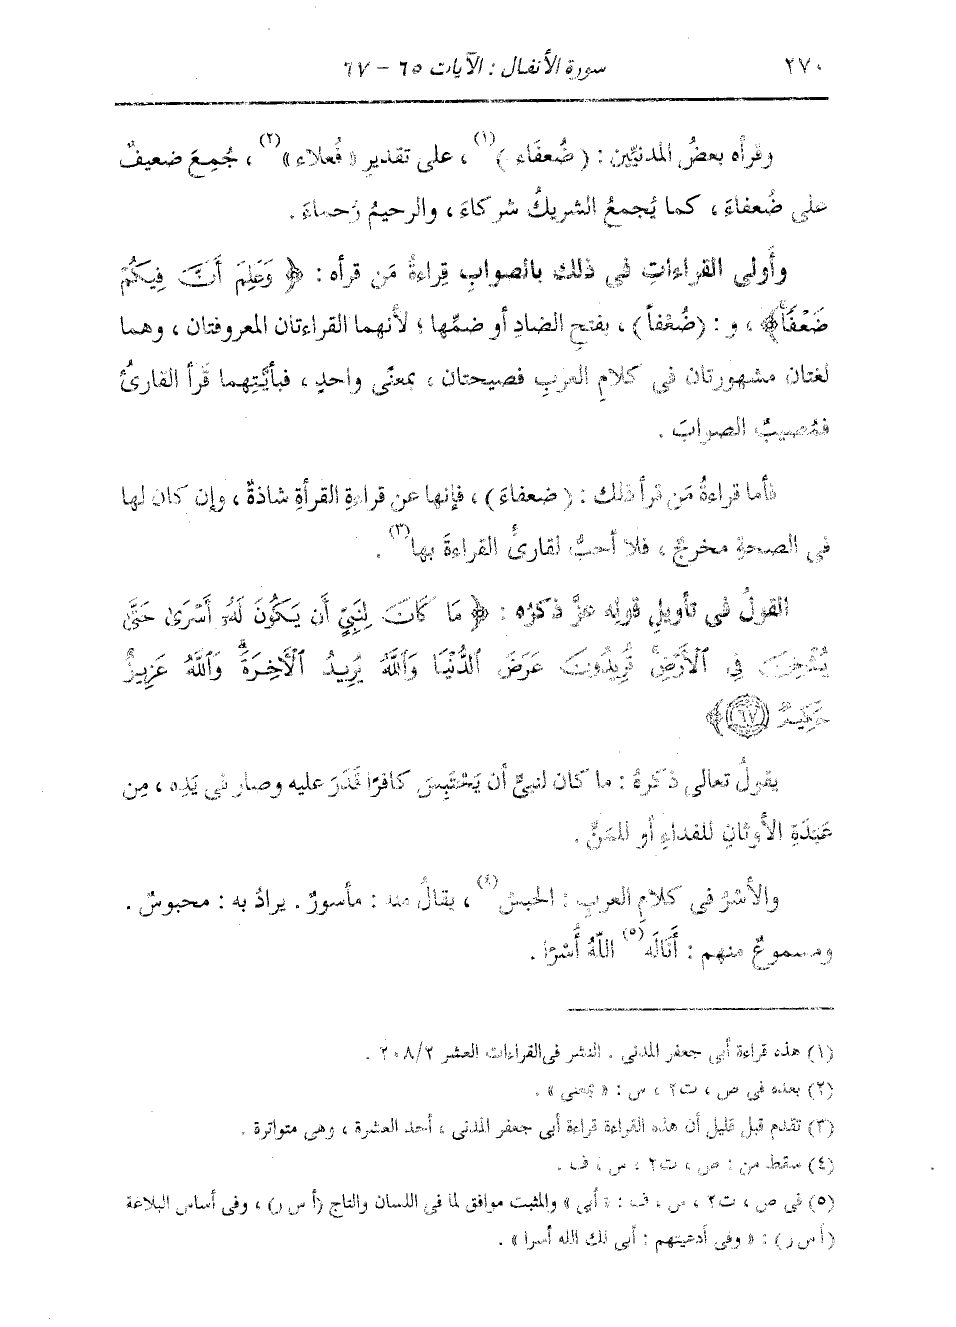 ٢٧٠
سورة الأنفال : الآيات ٦٥ - ٦٧
وقرأه بعضُ المدنيِّين : ( ضُعفَاء )(١) ، على تقديرِ « فُعلاء »(٢) ، جُمِعَ ضعيفٌ
على ضُعفاءَ ، كما يُجمعُ الشريكُ شركاءَ ، والرحيمُ رُحماءَ .
وأَولى القراءاتِ في ذلك بالصوابِ قراءةُ مَن قرأه : ﴿ وَعَلِمَ أَنَّ فِيكُمْ
ضَعْفًا ﴾ ، و : (ضُعْفاً) ، بفتحِ الضادِ أو ضمِّها ؛ لأنهما القراءتان المعروفتان ، وهما
لغتان مشهورتان في كلامِ العربِ فصيحتان ، بمعنًى واحدٍ ، فبأيَّتِهما قَرأ القارئُ
فمُصيبٌ الصوابَ .
فأما قراءةُ مَن قرأ ذلك : ( ضعفاءَ ) ، فإنها عن قراءةِ القرأةِ شاذةٌ ، وإن كان لها
في الصحةِ مخرجٌ ، فلا أحبُّ لقارئٍ القراءةَ بها(٣) .
القولُ في تأويلِ قولِه عزَّ ذكرُه : ﴿ مَا كَانَ لِنَبِيٍّ أَن يَكُونَ لَهُۥ أَسْرَىٰ حَتَّىٰ
يُثْخِنَ فِي ٱلْأَرْضِ ۚ تُرِيدُونَ عَرَضَ ٱلدُّنْيَا وَٱللَّهُ يُرِيدُ ٱلْآخِرَةَ ۗ وَٱللَّهُ عَزِيزٌ
حَكِيمٌ ٦٧ ﴾
يقولُ تعالى ذكرُهُ : ما كان لنبيٍّ أن يَحْتَبِسَ كافرًا قَدَرَ عليه وصار في يَدِه ، مِن
عَبَدَةِ الأوثانِ للفداءِ أو للمَنِّ .
والأسْرُ في كلامِ العربِ : الحبسُ(٤) ، يقالُ منه : مأسورٌ . يرادُ به : محبوسٌ .
ومسموعٌ منهم : أَنَالَه(٥) اللَّهُ أُسْرًا .
(١) هذه قراءة أبي جعفر المدنى . النشر فى القراءات العشر ٢٠٨/٢ .
(٢) بعده في ص ، ت٢ ، س : « بمعنى » .
(٣) تقدم قبل قليل أن هذه القراءة قراءة أبى جعفر المدنى ، أحد العشرة ، وهى متواترة .
(٤) سقط من : ص ، ت٢ ، س ، ف .
(٥) فى ص ، ت٢ ، س ، ف : « أبى » والمثبت موافق لما فى اللسان والتاج (أ س ر) ، وفى أساس البلاغة
(أ س ر) : « وفى أدعيتهم : أبى لك الله أسرا » .